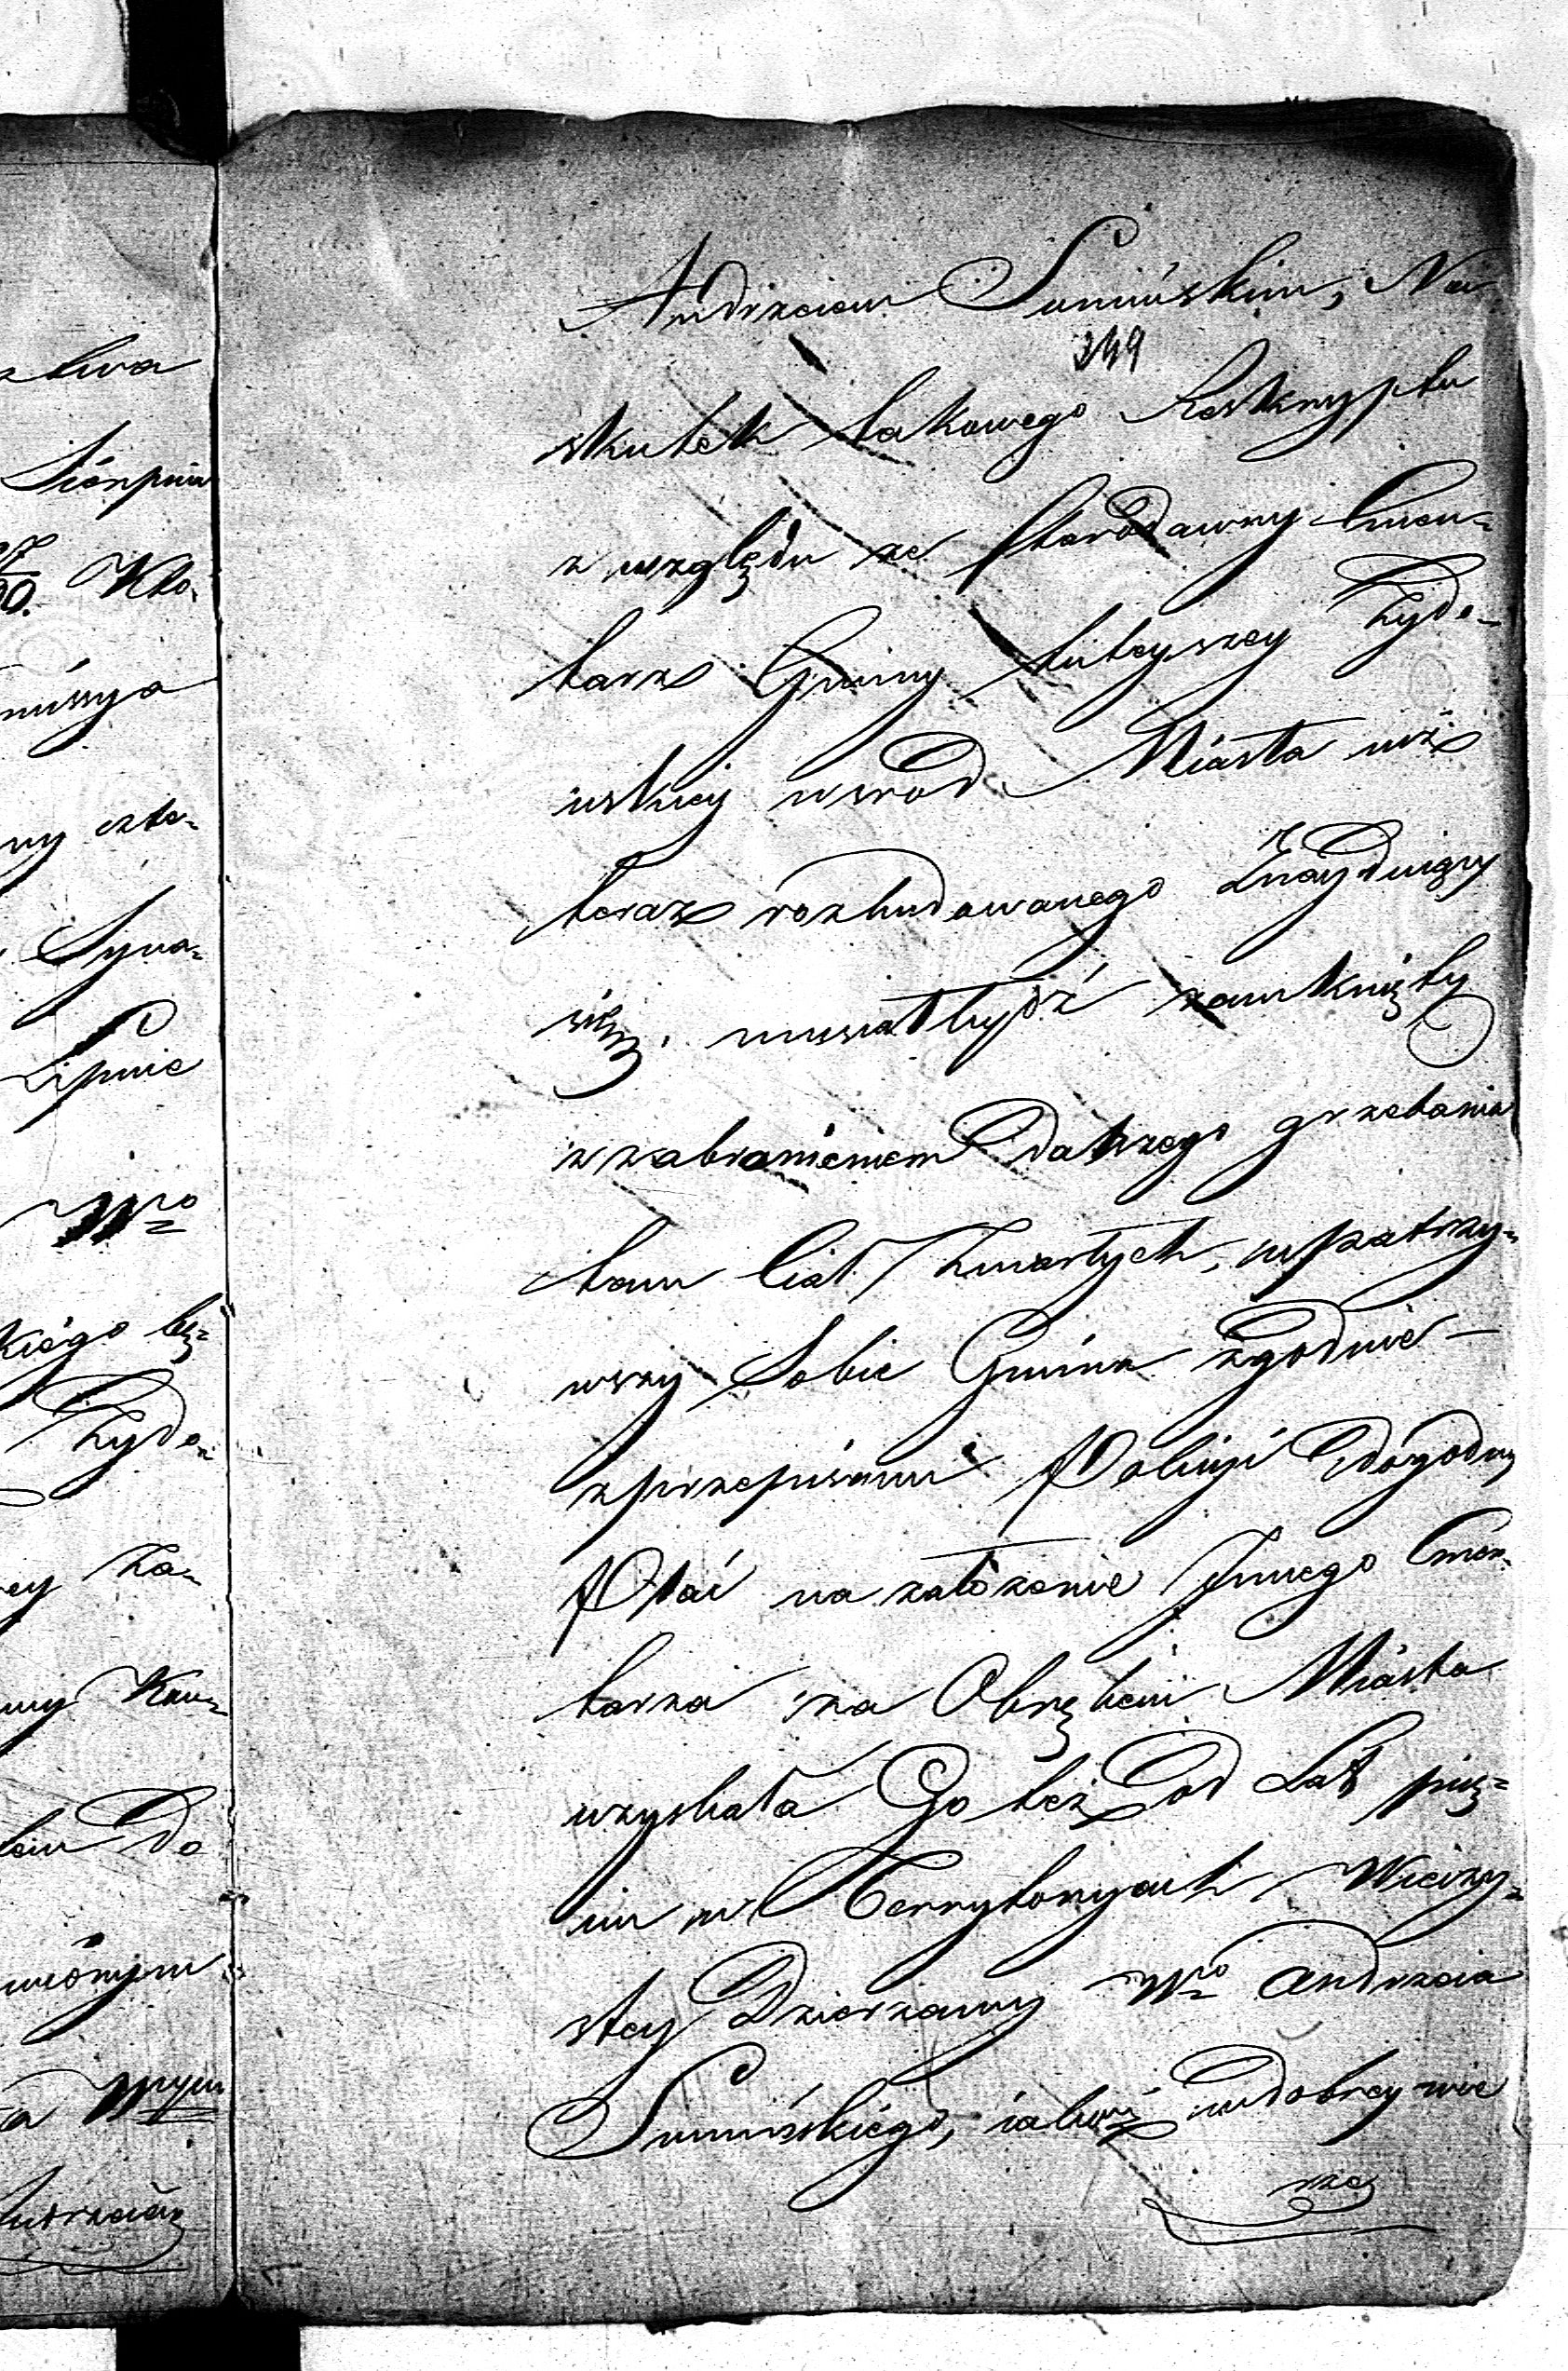 ztwa
Sierpnia
Kło-
missya
ny czte-
Syna-
Lipnie
Wgo
kiego bę-
Żydo-
ey Za-
Kon-
Do
mionym
a Wnym
Andrzeiem Sumińskim, Na
249
skutek takowego Reskryptu
z względu że starodawny Cmen-
tarz Gminy tuteyszey Żydo-
wskiey wsrod Miasta iuż
teraz rozbudowanego Znayduiący
się, musiał bydź zamknięty
z zabronieniem dalszego grzebania
tam Ciał Zmarłych, upatrzy-
wszy Sobie Gmina zgodnie
z przepisami Policyi dogodny
Plac na założenie Innego Cmen-
tarza za Obrębem Miasta
uzyskała Go też od Lat pię-
ciu w Terrytoryach Wieczy-
stey Dzierżawy Wgo Andrzeia
Sumińskiego, iakoż w dobrey wie
rze